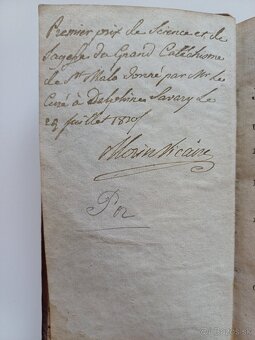 Premier prix de Science et de
Sagesse du Grand Catéchisme
de St Malo donné par Mr Le
Curé à Delphine Savary Le
29 juillet 18
Morin Vicaire